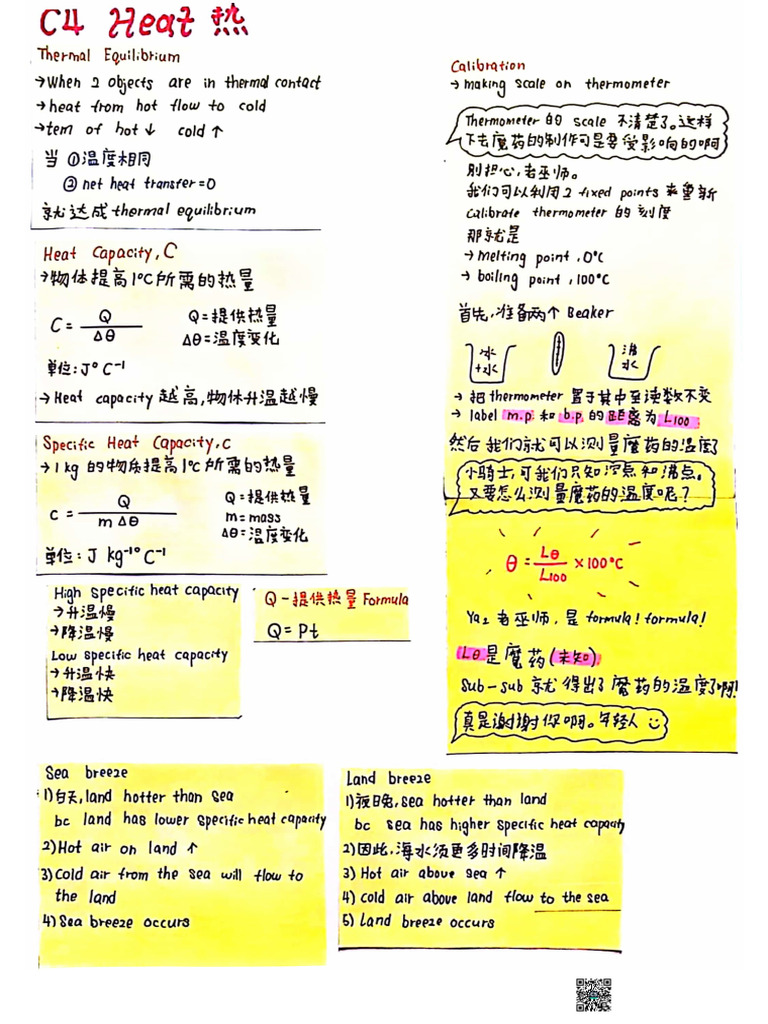 C4 Heat 热
Thermal Equilibrium
→When 2 objects are in thermal contact
→heat from hot flow to cold
→tem of hot↓ cold↑
当 ①温度相同
② net heat transfer=0
就达成thermal equilibrium
Heat Capacity, C
→物体提高1°C所需的热量
C = Q / Δθ
Q=提供热量
Δθ=温度变化
单位: J°C⁻¹
→Heat capacity越高,物体升温越慢
Specific Heat Capacity, c
→1 kg 的物质提高1°C所需的热量
c = Q / m Δθ
Q=提供热量
m=mass
Δθ=温度变化
单位: J kg⁻¹°C⁻¹
High specific heat capacity
→升温慢
→降温慢
Low specific heat capacity
→升温快
→降温快
Q-提供热量Formula
Q=Pt
Calibration
→making scale on thermometer
Thermometer的 scale 不清楚了。这样
下去魔药的制作可是要受影响的啊
别担心,老巫师。
我们可以利用2 fixed points来重新
calibrate thermometer的刻度
那就是
→melting point, 0°C
→boiling point, 100°C
首先,准备两个 Beaker
冰
+水
沸
水
→ 把thermometer 置于其中至读数不变
→ label m.p 和 b.p. 的 距离为 L100
然后我们就可以测量魔药的温度了
小骑士,可我们只知沉点和沸点。
又要怎么测量魔药的温度呢?
θ = Lθ / L100 ×100°C
Ya2 老巫师,是 formula! formula!
Lθ是魔药(未知)
Sub-sub 就得出了魔药的温度了啊!
真是谢谢你啊。年轻人
Sea breeze
1)白天,land hotter than sea
bc land has lower specific heat capacity
2)Hot air on land ↑
3)Cold air from the sea will flow to
the land
4)Sea breeze occurs
Land breeze
1)夜晚,sea hotter than land
bc sea has higher specific heat capacity
2)因此,海水须更多时间降温
3) Hot air above sea ↑
4) Cold air above land flow to the sea
5) Land breeze occurs